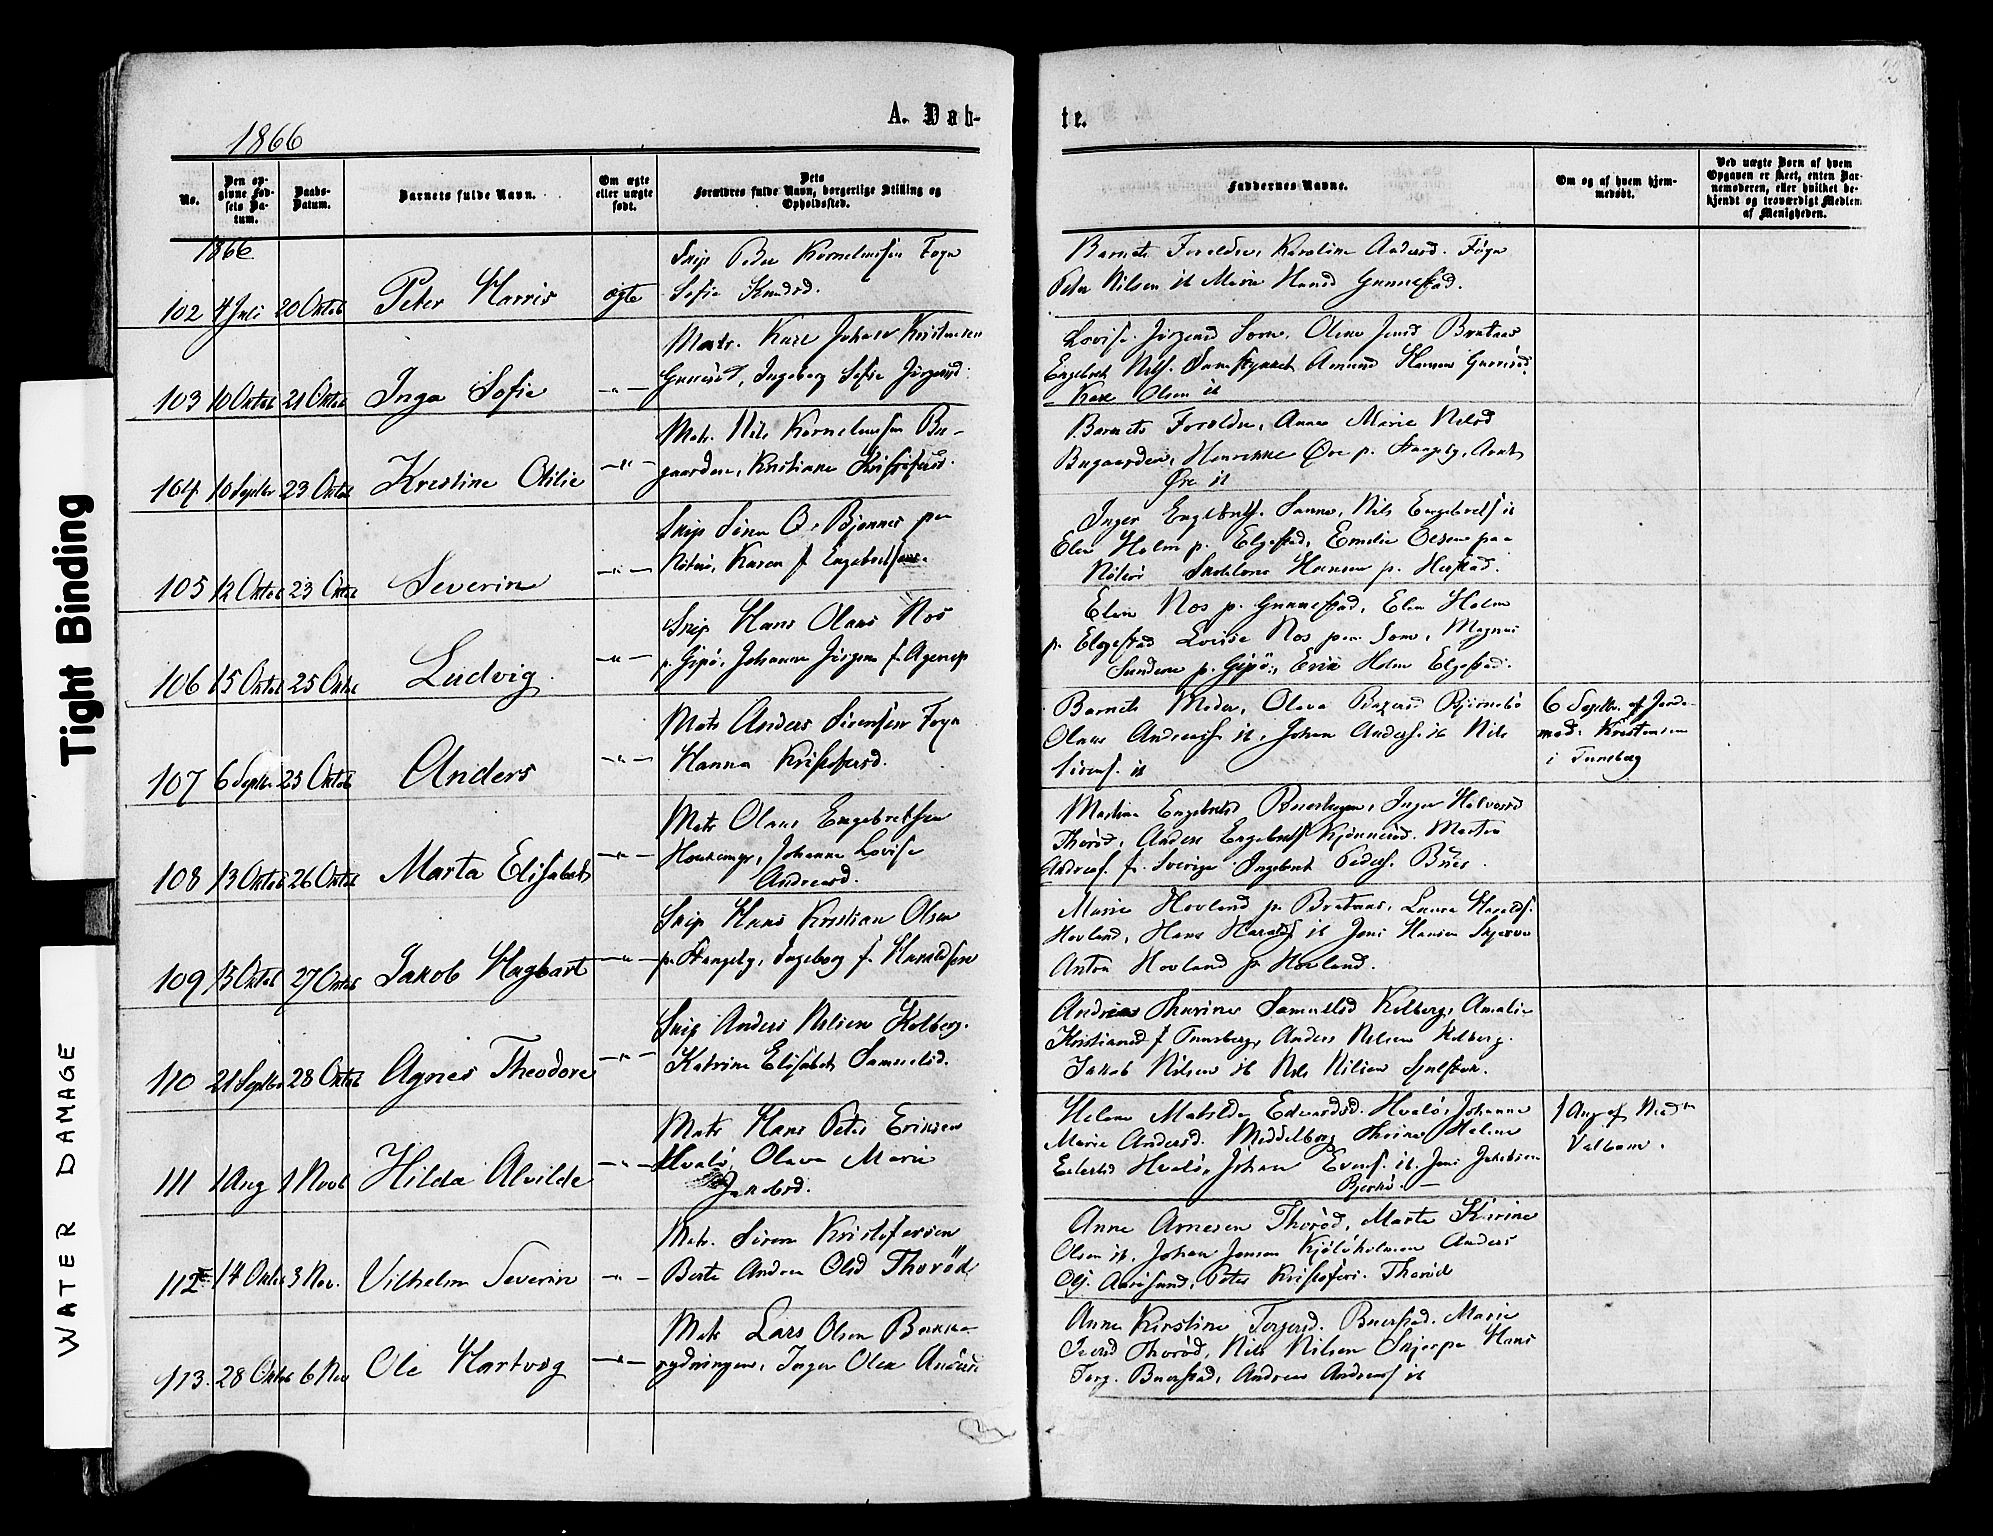 Tight Binding
WATER DAMAGE
1866
A. Døb-
te.
No.
Den op-
givne Fød-
sels Da-
tum.
Daabs-
Datum.
Barnets fulde Navn.
Om ægte
eller uægte
født.
Dets
Forældres fulde Navn, borgerlige Stilling og
Opholdssted.
Faddernes Navne.
Om og af hvem hjem-
medøbt.
Ved uægte Børn af hvem
Opgaven er skeet, enten Bar-
nemoderen, eller hvilket be-
kjendt og troværdigt Medlem
af Menigheden.
1866
102 4 Juli 20 Oktob Peter Harris ægte
Skip Peder Kornelinssen Foyn
Sofie Knudsd.
Barnets Foreldre, Karoline Andersd. Föyn
Peter Nilsen ib Marie Hansd Gunnestad.
103 10 Oktob 21 Oktob Inga Sofie -"-
Matr. Karl Johan Kristensen
Ingeborg Sofie Jörgensd.
Lovise Jörgensd Sem, Oline Jensd Brataas
Engebret Nils. Amund Hansen
Karl Olsen ib
104 10 Septbr 23 Oktob Kristine Otilie -"-
Matr. Nils Kornelinssen Bu-
gaarden, Kristiane Kristofersd.
Barnets Foreldre, Anne Marie Nilsd
Bugaarden, Øre p. Stangeby,
Øre ib
105 12 Oktob 23 Oktob Severin -"-
Skip Sören O. Bjönnes paa
Nöterö, Karen f Engebretsen
Inger Engebrets. Sanne, Nils Engebrets ib
Elen Holm p. Elgestad, Emilie Olsen paa
Nöterö Hansen p. Herstad.
106 15 Oktob 25 Oktob Ludvig -"-
Skip Hans Olaus Ros
p. Gipö, Johanne Jörgine f. Agerup
Elen Ros p. Gunnestad, Elen Holm
p. Elgestad Lovise Ros paa Sem, Magnus
Sundene p. Gipö, Erik Holm Elgestad.
107 6 Septbr 25 Oktob Anders -"-
Matr Anders Sörensen Foyn
Hanna Kristofersd.
Barnets Moder, Olava Björnebö
Olaus Andreass ib, Johan Anders. ib Nils
Sörens. ib
6 Septbr. af Jorde-
mod. Kristensen
i Tunsberg
108 13 Oktob 26 Oktob Marta Elisabet -"-
Matr Olaus Engebretsen
Johanne Lovise
Andreasd.
Martine Engebretsd Inger Halvorsd
Thoröd, Anders Engebrets Kjönneröd. Martin
Andreas. fr. Sverige Ingebret Peders. Buer.
109 13 Oktob 27 Oktob Jakob Hagbart -"-
Skip Hans Kristian Olsen
p. Stangeby, Ingeborg f. Haraldsen
Marie Hovland p. Brataas, Laura Haralds.
Hovland, Hans Haralds ib Jens Hansen Skjerve
Anton Hovland p. Hovland.
110 21 Septbr 28 Oktob Agnes Theodore -"-
Skip Anders Nilsen Kolberg.
Katrine Elisabet Samuelsd.
Andrea Thurine Samuelsd Kolberg, Amalie
Kristiansd f Tunsberg, Anders Nilsen Kolberg.
Jakob Nilsen ib Nils Nilsen
111 1 Aug 1 Novb Hilda Alvilde -"-
Matr Hans Peter Eriksen
Hvalö, Olava Marie
Jakobsd.
Helene Matilda Edvardsd. Hvalö, Johanne
Marie Andersd. Middelborg Helene
Hvalö, Johan Evens. ib, Jens Jakobsen
Bjerkö.
1 Aug af
Valbom.
112 14 Oktob 3 Nov. Vilhelm Severin -"-
Matr. Sören Kristofersen
Berte Andrea Olsd Thoröd.
Anne Arnesen Thoröd, Marte Karine
Olsen ib, Johan Jensen Kjölöholmen Anders
Ols. Aarösund, Peter Kristofers. Thoröd
113. 28 Oktob 6 Nov Ole Hartvig -"-
Matr Lars Olsen Bakke-
rydningen, Inger Olea Andersd
Anne Kirstine Torgersd. Buerstad. Marie
Iversd Thoröd, Nils Nilsen Skjerpe Hans
Torg. Buerstad, Andreas Andreass ib